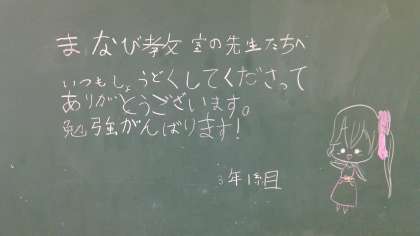 まなび教室の先生たちへ
いつもしょうどくしてくださって
ありがとうございます。
勉強がんばります!
3年1組